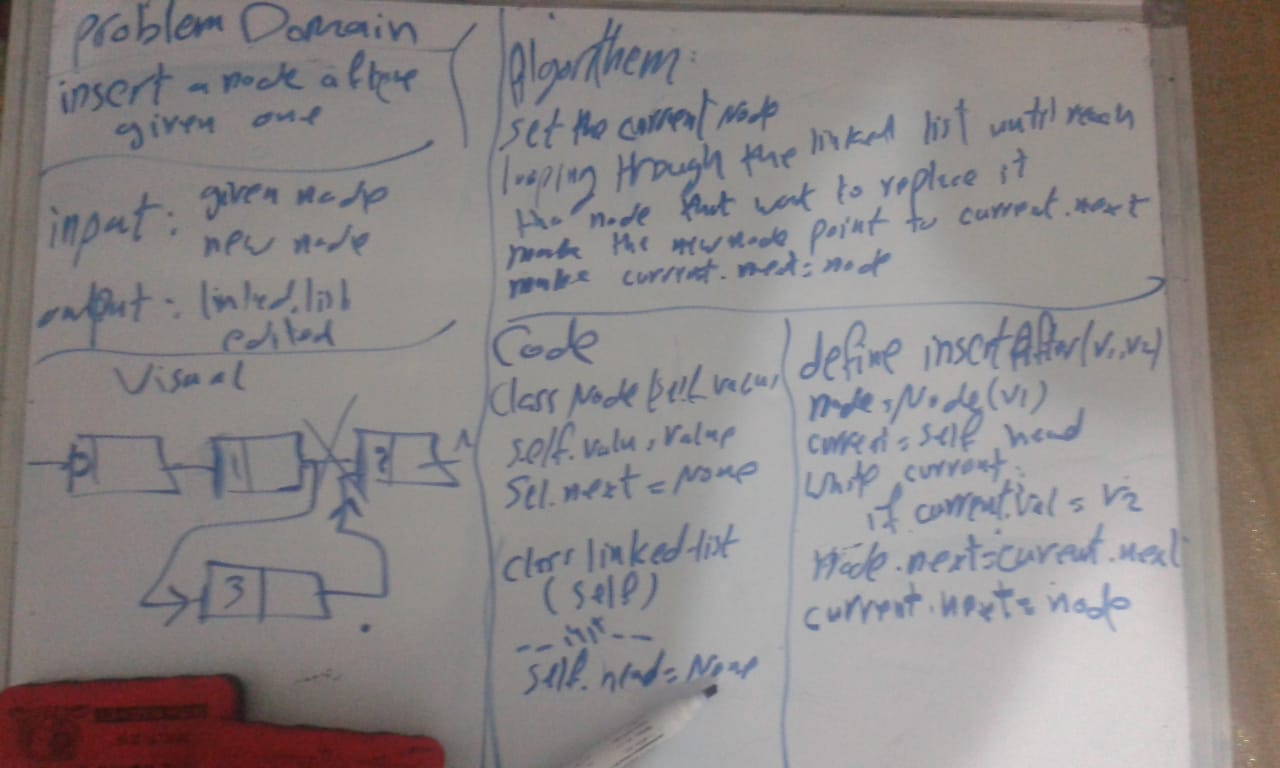 problem Domain
insert a node after
given one
input: given node
new node
output: linked.list
edited
Visual
1
2
3
Algorthem:
set the current Node
looping through the linked list until reach
the node that want to replace it
make the new node point to current.next
make current.next = node
Code
Class Node (self, value)
self.valu = value
Sel.next = None
Class linked-list
(self)
__init__
self.head = None
define insertAfter(v1,v2)
node = Node(v1)
current = self head
while current:
if current.val = v2
Node.next = current.next
current.next = node